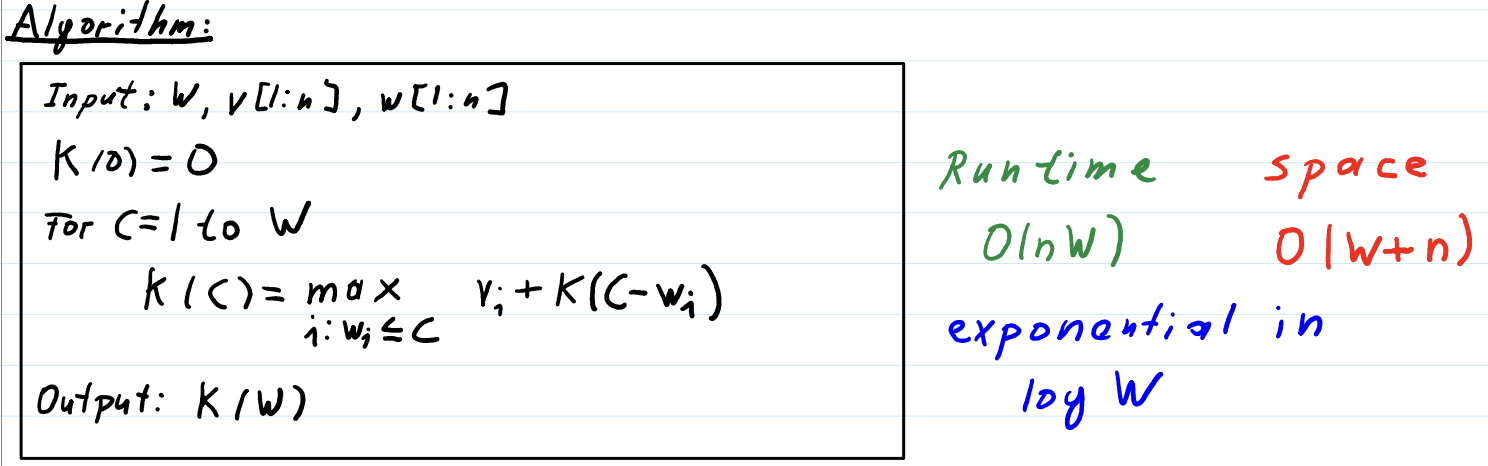 Algorithm:
Input: W, v[1:n], w[1:n]
K(0) = 0
For C=1 to W
K(C) = max v_i + K(C-w_i)
i: w_i ≤ C
Output: K(W)
Runtime space
O(nW) O(W+n)
exponential in
log W